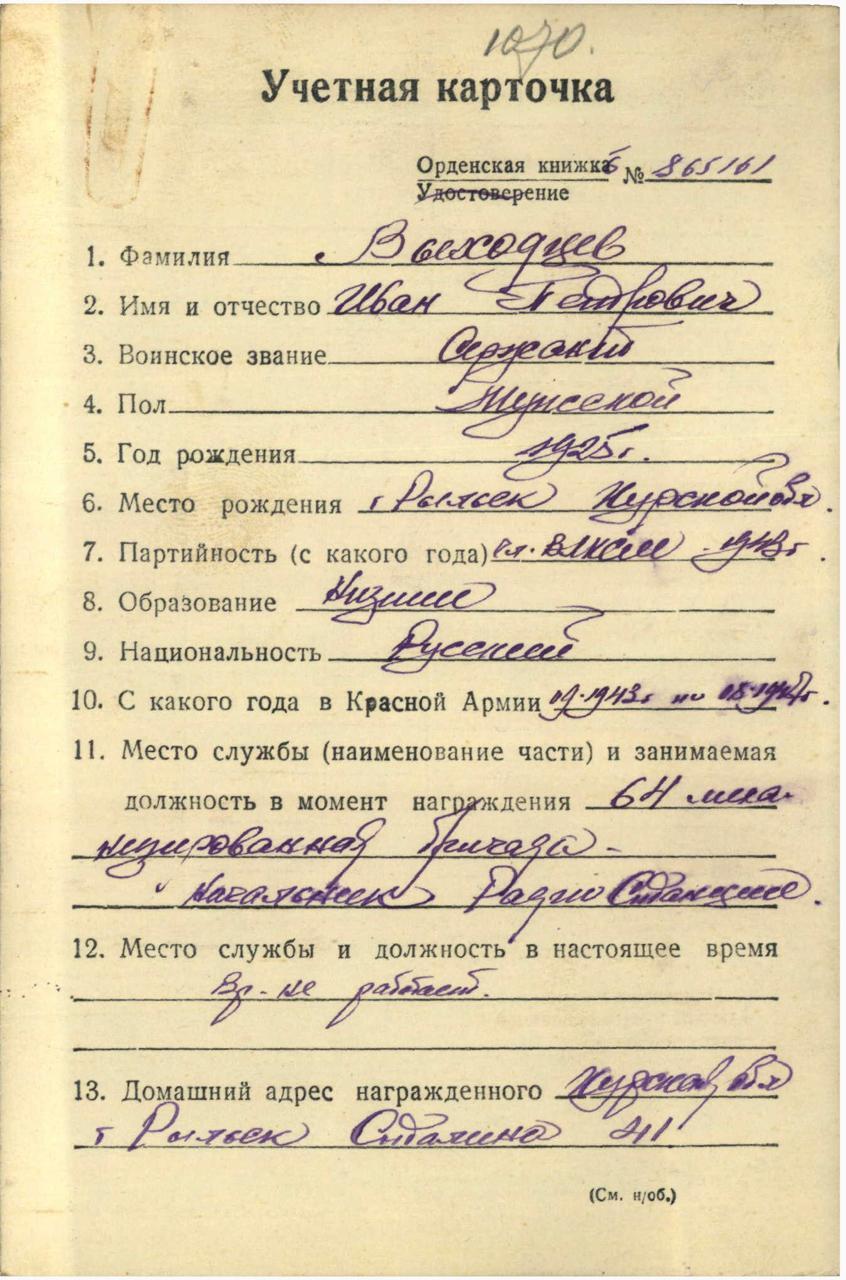 1070.
Учетная карточка
Орденская книжка
Б № 865161
Удостоверение
1. Фамилия Выходцев
2. Имя и отчество Иван Петрович
3. Воинское звание Сержант
4. Пол Мужской
5. Год рождения 1925 г.
6. Место рождения г Рыльск Курской обл.
7. Партийность (с какого года) чл. ВЛКСМ 1943 г.
8. Образование Низшее
9. Национальность Русский
10. С какого года в Красной Армии 09-1943 г по
11. Место службы (наименование части) и занимаемая
должность в момент награждения 64 меха-
низированная бригада -
Начальник Радио Станции.
12. Место службы и должность в настоящее время
Вр-не работает.
13. Домашний адрес награжденного Курская обл
г Рыльск Сталина 41
(См. н/об.)